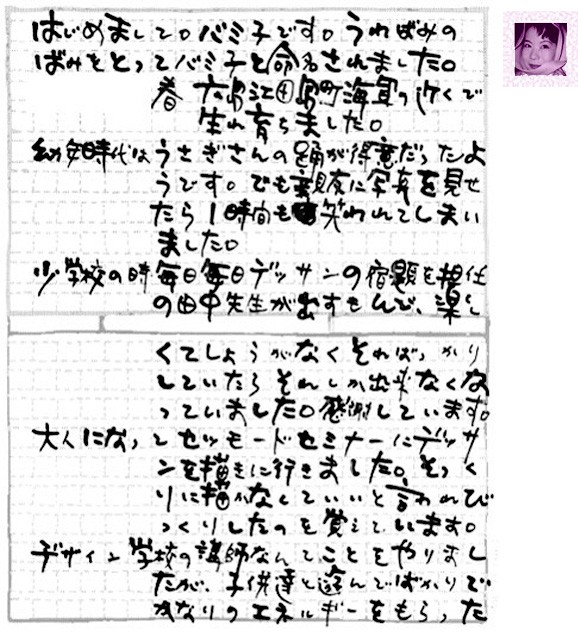 はじめまして。バミ子です。うわばみの
ばみをとってバミ子と命名されました。
春 広島江田島町海軍の近くで
生れ育ちました。
幼年時代はうさぎさんの踊が得意だったよ
うです。でも親友に写真を見せ
たら1時間も笑われてしまい
ました。
少学校の時毎日毎日デッサンの宿題を担任
の田中先生が出すもんで、楽し
くてしょうがなくそればっかり
していたらそれしか出来なくな
っていました。感謝しています。
大人になってセツモードセミナーにデッサ
ンを描きに行きました。そっく
りに描かなくていいと言われび
っくりしたのを覚えています。
デザイン学校の講師なんてことをやりまし
たが、子供達と遊んでばかりで
かなりのエネルギーをもらった